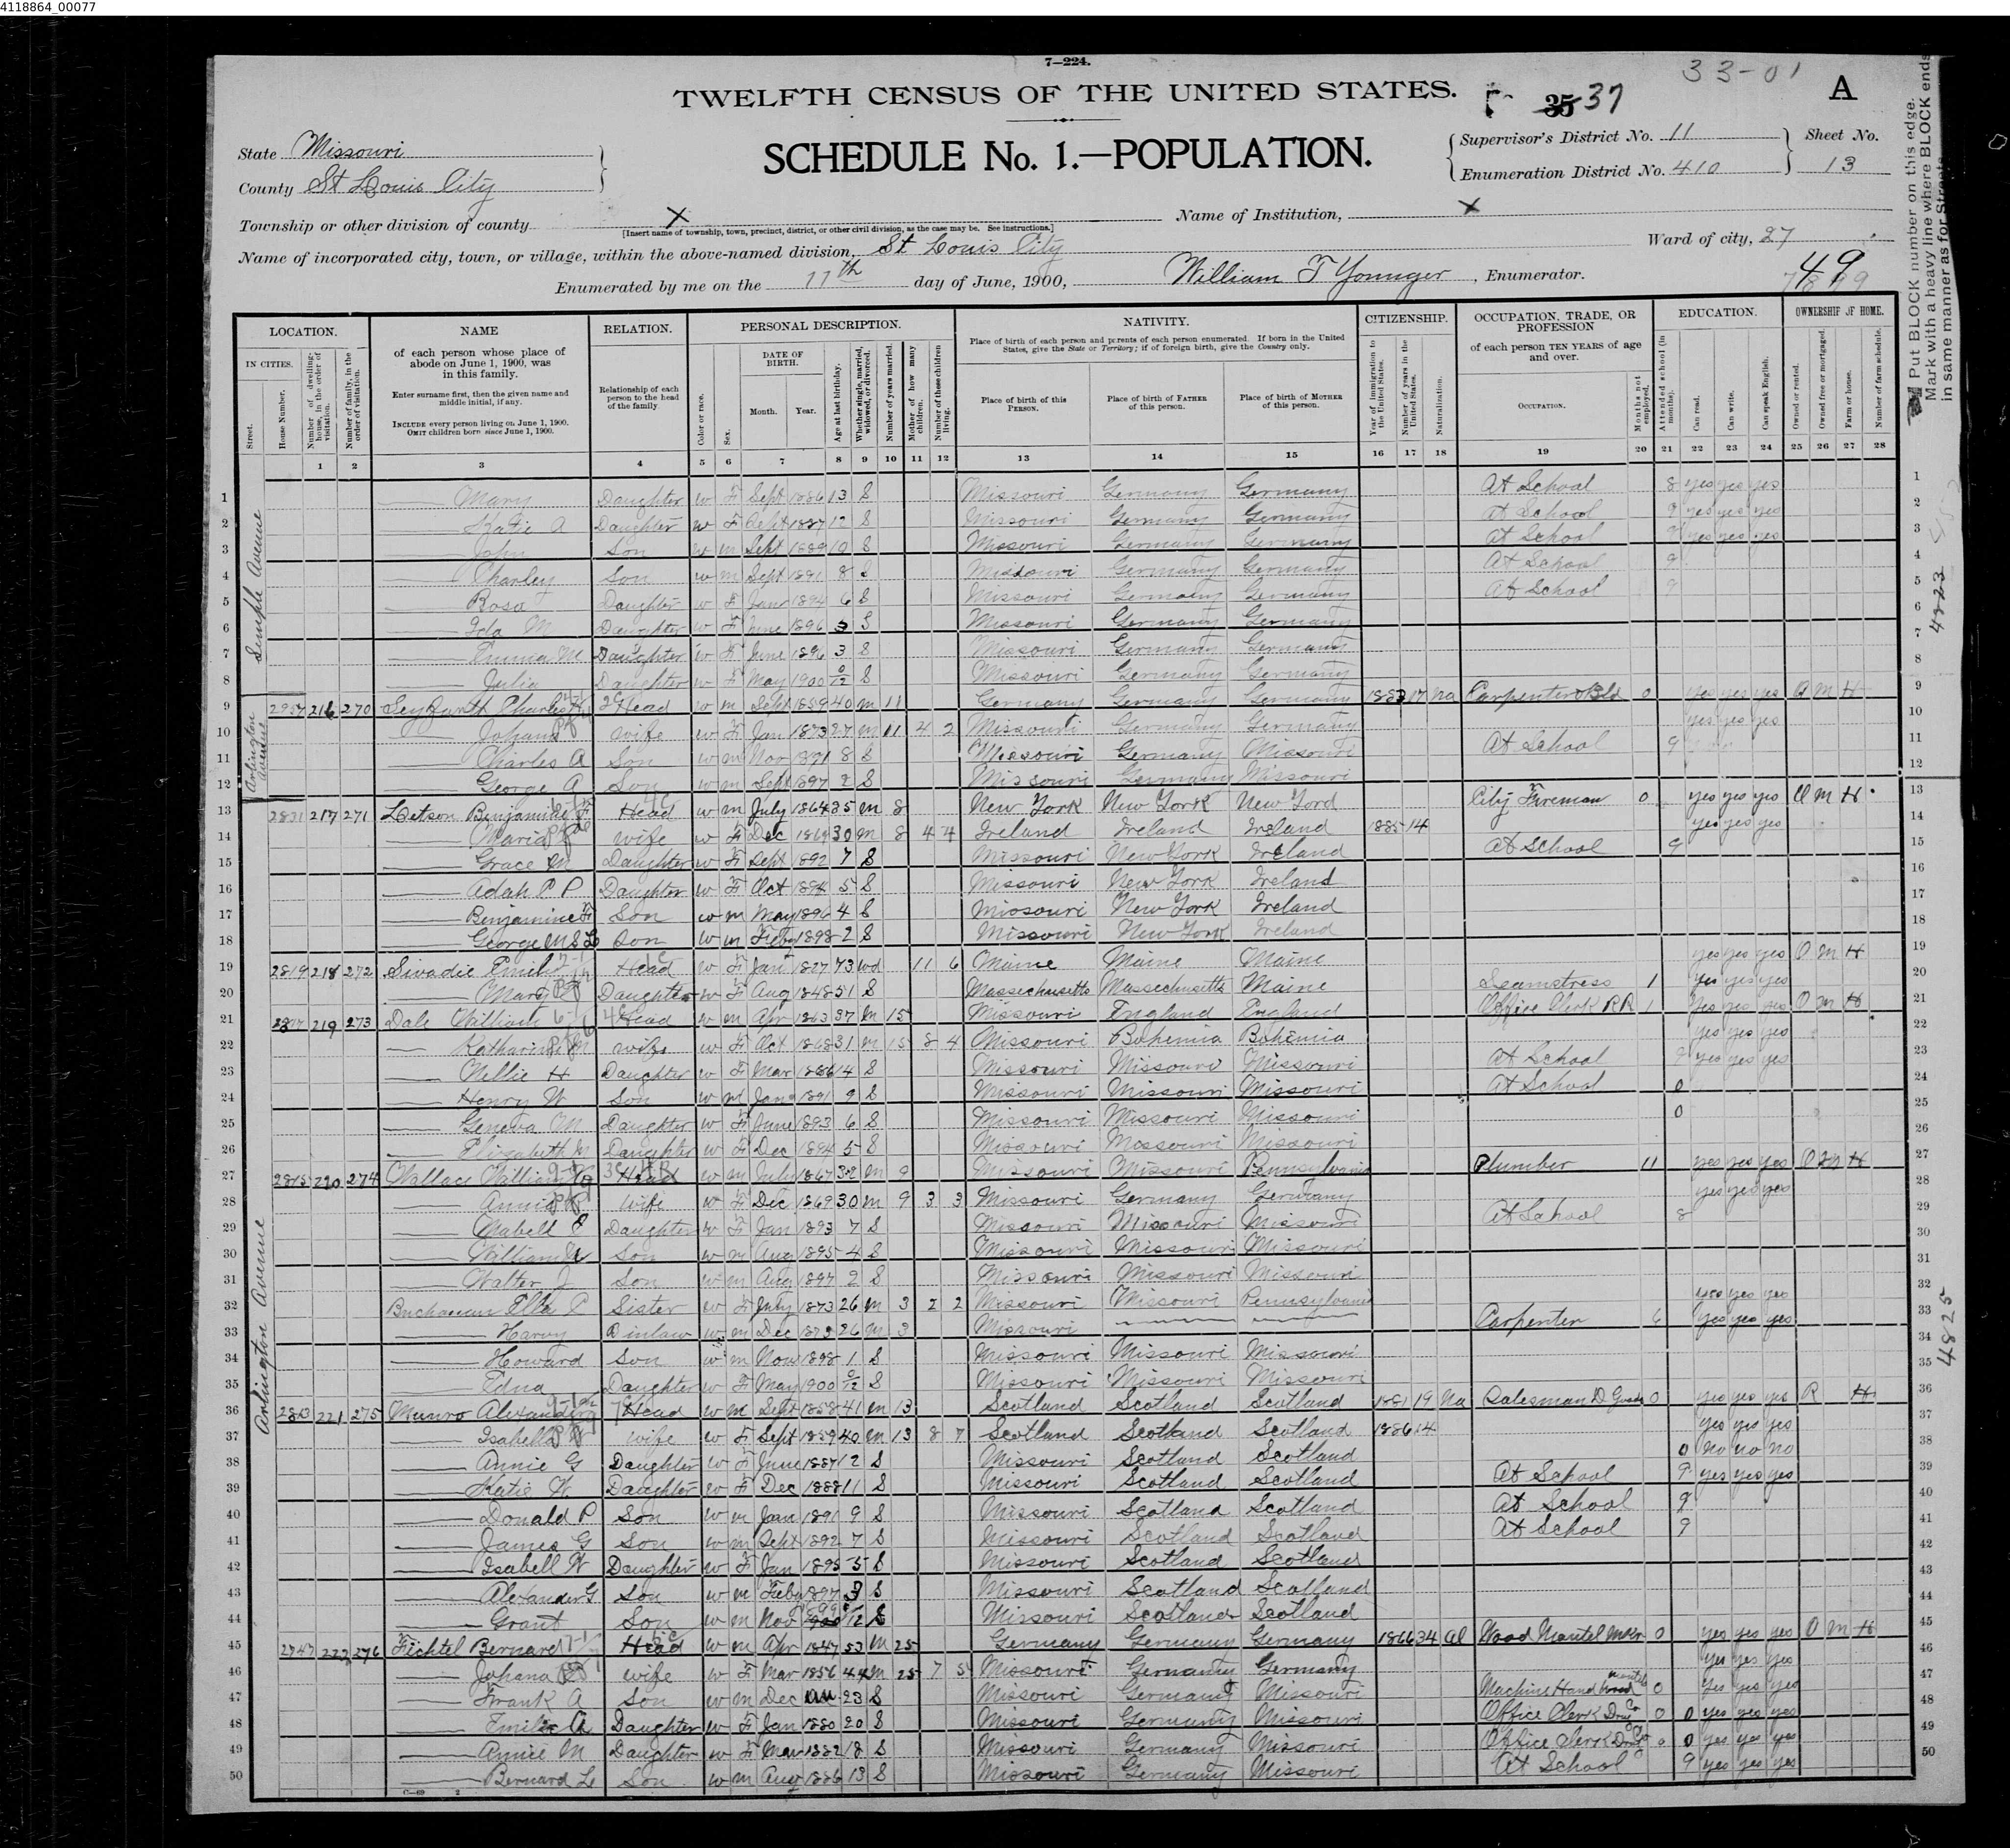 4118864_00077
7—224.
TWELFTH CENSUS OF THE UNITED STATES.
35 37
33-01
A
State Missouri
County St Louis City
SCHEDULE No. 1.—POPULATION.
Supervisor's District No. 11
Enumeration District No. 410
Sheet No. 13
Township or other division of county X
[Insert name of township, town, precinct, district, or other civil division, as the case may be. See instructions.]
Name of Institution, X
Name of incorporated city, town, or village, within the above-named division, St Louis City
Ward of city, 27
Enumerated by me on the 11th day of June, 1900, William F Younger, Enumerator.
49
Put BLOCK number on this edge.
Mark with a heavy line where BLOCK ends
in same manner as for Streets
LOCATION. NAME RELATION. PERSONAL DESCRIPTION. NATIVITY. CITIZENSHIP. OCCUPATION, TRADE, OR PROFESSION EDUCATION. OWNERSHIP OF HOME.
IN CITIES.
Street.
House Number.
Number of dwelling-house, in the order of visitation.
Number of family, in the order of visitation.
of each person whose place of abode on June 1, 1900, was in this family.
Enter surname first, then the given name and middle initial, if any.
INCLUDE every person living on June 1, 1900. OMIT children born since June 1, 1900.
Relationship of each person to the head of the family
Color or race.
Sex.
DATE OF BIRTH.
Month. Year.
Age at last birthday.
Whether single, married, widowed, or divorced.
Number of years married.
Mother of how many children.
Number of these children living.
Place of birth of each person and parents of each person enumerated. If born in the United States, give the State or Territory; if of foreign birth, give the Country only.
Place of birth of this PERSON.
Place of birth of FATHER of this person.
Place of birth of MOTHER of this person.
Year of immigration to the United States.
Number of years in the United States.
Naturalization.
of each person TEN YEARS of age and over.
OCCUPATION.
Months not employed.
Attended school (in months).
Can read.
Can write.
Can speak English.
Owned or rented.
Owned free or mortgaged.
Farm or house.
Number of farm schedule.
1 2 3 4 5 6 7 8 9 10 11 12 13 14 15 16 17 18 19 20 21 22 23 24 25 26 27 28
Semple Avenue
1 Mary Daughter w F Sept 1886 13 S Missouri Germany Germany At School 8 yes yes yes
2 Katie A Daughter w F Sept 1887 12 S Missouri Germany Germany At School 9 yes yes yes
3 John Son w m Sept 1889 10 S Missouri Germany Germany At School yes yes yes
4 Charley Son w m Sept 1891 8 S Missouri Germany Germany At School 9
5 Rosa Daughter w F Jan 1894 6 S Missouri Germany Germany At School 9
6 Ida M Daughter w F June 1896 3 S Missouri Germany Germany
7 Emma M Daughter w F June 1896 3 S Missouri Germany Germany
8 Julia Daughter w F May 1900 0/12 S Missouri Germany Germany
Arlington avenue
9 2957 216 270 Charles Head w m Sept 1859 40 m 11 Germany Germany Germany 1883 17 Na Carpenter Bld 0 yes yes yes O M H
10 Johana wife w F Jan 1873 27 m 11 4 2 Missouri Germany Germany yes yes yes
11 Charles A Son w m Nov 1891 8 S Missouri Germany Missouri At School 9
12 George A Son w m Sept 1897 2 S Missouri Germany Missouri
13 2831 217 271 Letson Benjamin F Head w m July 1864 35 m 8 New York New York New Yord City Fireman 0 yes yes yes O M H
14 Maria Wife w F Dec 1869 30 m 8 4 4 Ireland Ireland Ireland 1885 14 yes yes yes
15 Grace M Daughter w F Sept 1892 7 S Missouri New York Ireland At School 9
16 Adah P P Daughter w F Oct 1894 5 S Missouri New York Ireland
17 Benjamine F Son w m May 1896 4 S Missouri New York Ireland
18 George M S L Son w m Feby 1898 2 S Missouri New York Ireland
19 2819 218 272 Sivadie Emile Head w F Jan 1827 73 wd 11 6 Maine Maine Maine yes yes yes O M H
20 Mary Daughter w F Aug 1848 51 S Massechusetts Massechusetts Maine Seamstress 1 yes yes yes
21 2817 219 273 Dale William Head w m Apr 1863 37 m 15 Missouri England England Office Clerk R R 1 yes yes yes O M H
22 Katharine M wife w F Oct 1868 31 m 15 8 4 Missouri Bohemia Bohemia yes yes yes
23 Nellie H Daughter w F Mar 1886 14 S Missouri Missouri Missouri At School 9 yes yes yes
24 Henry W Son w m Jan 1891 9 S Missouri Missouri Missouri At School 0
25 Geneva M Daughter w F June 1893 6 S Missouri Missouri Missouri 0
26 Elizabeth M Daughter w F Dec 1894 5 S Missouri Missouri Missouri
Arlington Avenue
27 2815 220 274 Wallace William G Head w m July 1867 32 m 9 Missouri Missouri Pennsylvania Plumber 11 yes yes yes O M H
28 Annie wife w F Dec 1869 30 m 9 3 3 Missouri Germany Germany yes yes yes
29 Mabell E Daughter w F Jan 1893 7 S Missouri Missouri Missouri At School 8
30 William Son w m Aug 1895 4 S Missouri Missouri Missouri
31 Walter J Son w m Aug 1897 2 S Missouri Missouri Missouri
32 Buchanan Ella P Sister w F July 1873 26 m 3 2 2 Missouri Missouri Pennsylvania yes yes yes
33 Harvy B inlaw w m Dec 1873 26 m 3 Missouri Carpenter 6 yes yes yes
34 Howard Son w m Nov 1898 1 S Missouri Missouri Missouri
35 Edna Daughter w F May 1900 0/12 S Missouri Missouri Missouri
36 2810 221 275 Munro Alexander Head w m Sept 1858 41 m 13 Scotland Scotland Scotland 1881 19 Na Salesman D Goods 0 yes yes yes R H
37 Isabell wife w F Sept 1859 40 m 13 8 7 Scotland Scotland Scotland 1886 14 yes yes yes
38 Annie G Daughter w F June 1887 12 S Missouri Scotland Scotland 0 no no no
39 Katie W Daughter w F Dec 1888 11 S Missouri Scotland Scotland At School 9 yes yes yes
40 Donald P Son w m Jan 1891 9 S Missouri Scotland Scotland At School 9
41 James G Son w m Sept 1892 7 S Missouri Scotland Scotland At School 9
42 Isabell W Daughter w F Jan 1895 5 S Missouri Scotland Scotland
43 Alexander G Son w m Feby 1897 3 S Missouri Scotland Scotland
44 Grant Son w m Nov 1899 /12 S Missouri Scotland Scotland
45 2747 222 276 Fichtel Bernard Head w m Apr 1847 53 m 25 Germany Germany Germany 1866 34 Al Wood Mantel Mkr 0 yes yes yes O M H
46 Johana wife w F Mar 1856 44 m 25 7 5 Missouri Germany Germany yes yes yes
47 Frank A Son w m Dec 23 S Missouri Germany Missouri Machine Hand Mantels 0 yes yes yes
48 Emilie A Daughter w F Jan 1880 20 S Missouri Germany Missouri Office Clerk Drug Co 0 0 yes yes yes
49 Annie M Daughter w F Mar 1882 18 S Missouri Germany Missouri Office Clerk Drug Co 0 0 yes yes yes
50 Bernard L Son w m Aug 1886 13 S Missouri Germany Missouri At School 9 yes yes yes
4823
4825